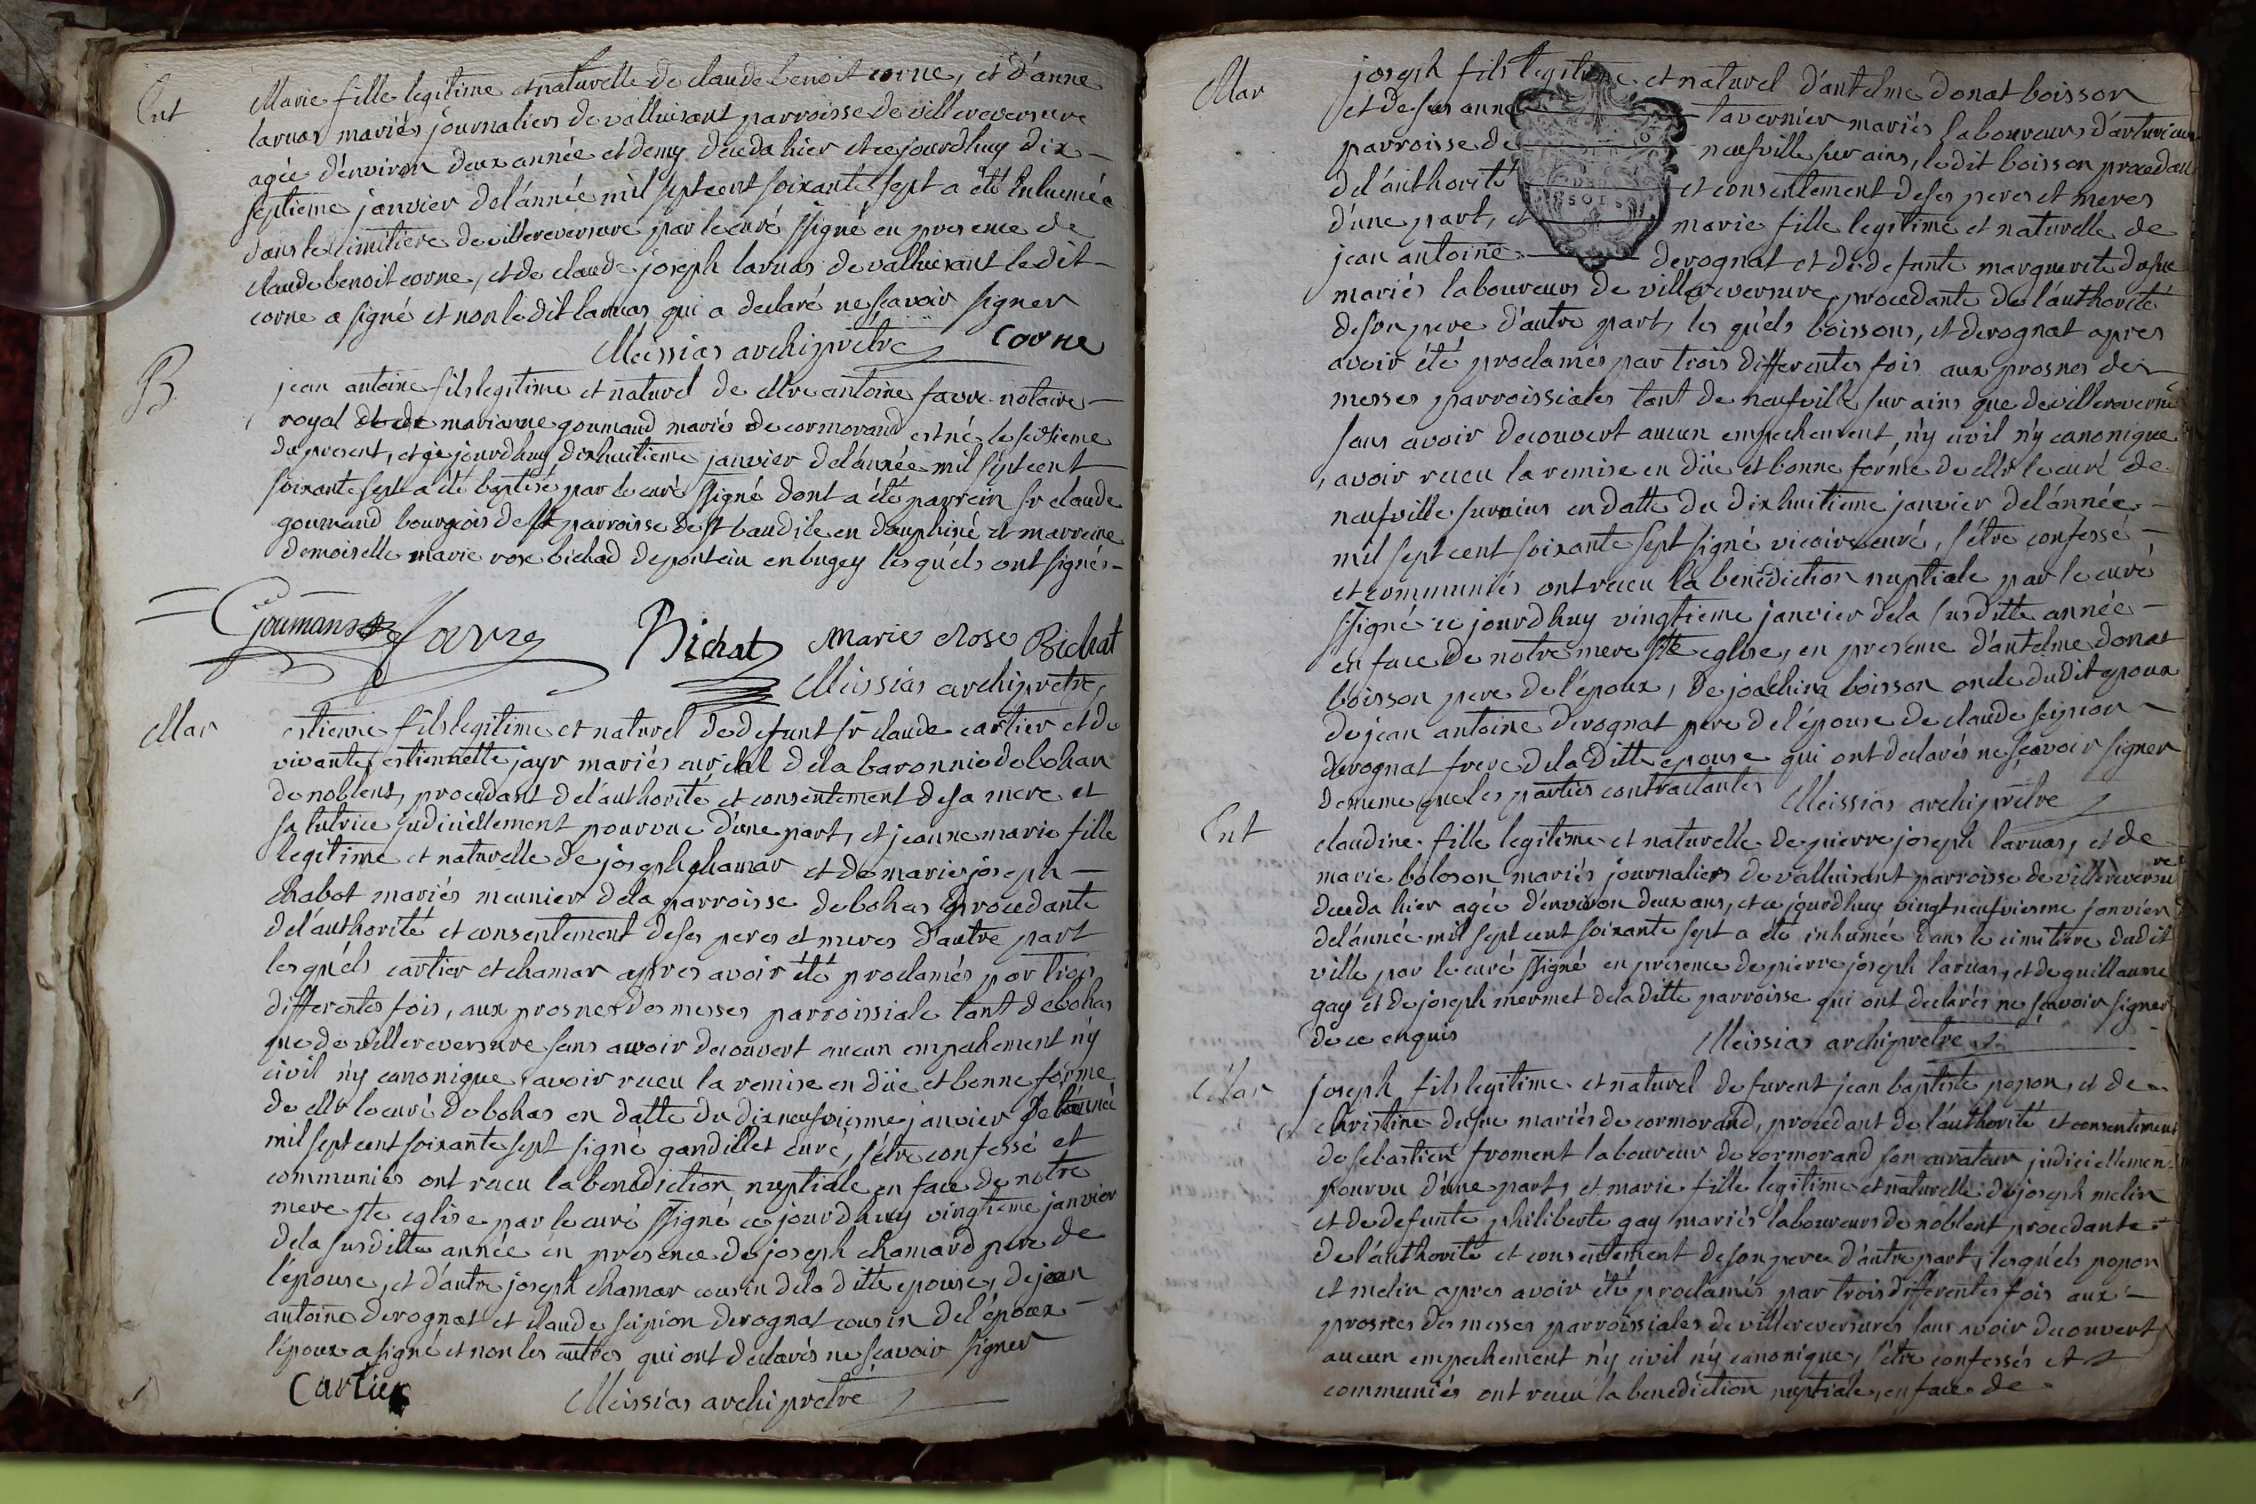 Ent
Marie fille legitime et naturelle de claude benoit corne, et d'anne
laruas mariés journaliers de valluisant parroisse de villereversure
agée d'environ deux année et demy deceda hier et ce jourdhuy dix
septieme janvier de l'année mil sept cent soixante sept a été Enhumée
dans le cimitiere de villereversure par le curé ssigné en presence de
claude benoit corne, et de claude joseph laruas de valluisant le dit
corne a signé et non le dit laruas qui a declaré ne sçavoir signer
Meissias archiprêtre corne
B
jean antoine fils legitime et naturel de Mre antoine favre notaire
royal et de marianne goumand mariés de cormorand est né le seitieme
du present, et ce jourdhuy dixhuitieme janvier de l'année mil sept cent
soixante sept a été baptisé par le curé ssigné dont a été parrein sr claude
goumand bourgeois de la parroisse de st baudile en dauphiné et marreine
demoiselle marie rose bichad de pontein en bugey lesquels ont signés
Goumand favre Bichat Marie Rose Bichat
Meissias archiprêtre
Mar
estienne fils legitime et naturel de defunt sr claude cartier et de
vivante estiennette jayr mariés curial de la baronnie de bohan
de noblens, procedant de l'authorité et consentement de sa mere et
sa tutrice judiciellement pourvue d'une part, et jeanne marie fille
legitime et naturelle de joseph chamar et de marie joseph
chabot mariés meunier de la parroisse de bohas procedante
de l'authorité et consentement de ses peres et meres d'autre part
lesquels cartier et chamar apres avoir été proclamés par trois
differentes fois, aux prosnes des messes parroissiale tant de bohas
que de villereversure sans avoir decouvert aucun empechement n'y
civil n'y canonique, avoir receu la remise en düe et bonne forme
de Mr le curé de bohas en datte du dixneufvieme janvier de l'année
mil sept cent soixante sept signé gandillet curé, s'être confessé et
communiés ont receu la benediction nuptiale en face de notre
mere ste eglise par le curé ssigné ce jourdhuy vingtieme janvier
de la susditte année en presence de joseph chamard pere de
l'épouse, et d'autre joseph chamar cousin de la ditte epouse, de jean
antoine derognat et claude scipion derognat cousin de l'époux
l'époux a signé et non les autres qui ont declarés ne sçavoir signer
Cartier Meissias archiprêtre
Mar
joseph fils legitime et naturel d'antelme donat boisson
et de sus anne tavernier mariés laboureurs
parroisse de neufville sur ains, le dit boisson procedant
de l'authorité et consentement de ses peres et meres
d'une part, et marie fille legitime et naturelle de
jean antoine derognat et de defunte marguerite dufne
mariés laboureurs de villereversure, procedante de l'authorité
de son pere d'autre part, les quels boissons, et derognat apres
avoir été proclamés par trois differentes fois aux prosnes des
messes parroissiales tant de neufville sur ains que de villereversure
sans avoir decouvert aucun empechement n'y civil n'y canonique
, avoir receu la remise en düe et bonne forme de Mr le curé de
neufville sur ains en datte du dixhuitieme janvier de l'année
mil sept cent soixante sept signé vicaire curé, s'être confessé
et communiés ont receu la benediction nuptiale par le curé
ssigné ce jourdhuy vingtieme janvier de la susditte année
en face de notre mere ste eglise, en presence d'antelme donat
boisson pere de l'époux, de joachim boisson oncle dudit epoux
de jean antoine derognat pere de l'épouse de claude scipion
derognat frere de la ditte epouse qui ont declarés ne sçavoir signer
de meme que les parties contractantes Meissias archiprêtre
Ent
claudine fille legitime et naturelle de pierre joseph laruas, et de
marie boloson mariés journaliers de valluisant parroisse de villereversure
deceda hier agée d'environ deux ans, et ce jourdhuy vingt neufvieme janvier
de l'année mil sept cent soixante sept a été inhumée dans le cimitiere dudit
ville par le curé ssigné en presence de pierre joseph laruas, et de guillaume
gay et de joseph mermet de la ditte parroisse qui ont declarés ne sçavoir signer
de ce enquis Meissias archiprêtre
Mar
joseph fils legitime et naturel de furent jean baptiste popon, et de
christine dufne mariés de cormorand, procedant de l'authorité et consentement
de sebastien froment laboureur de cormorand son curateur judiciellement
pourvu d'une part, et marie fille legitime et naturelle de joseph melin
et de defunte philiberte gay mariés laboureurs de noblent procedante
de l'authorité et consentement de son pere d'autre part, lesquels popon
et melin apres avoir été proclamés par trois differentes fois aux
prosnes des messes parroissiales de villereversures sans avoir decouvert
aucun empechement n'y civil n'y canonique, s'être confessés et
communiés ont receu la benediction nuptiale, en face de